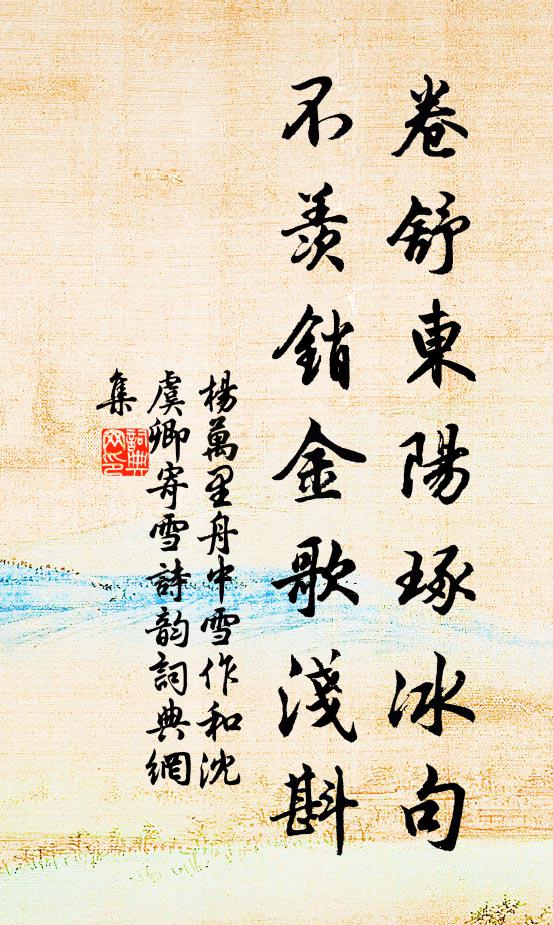 卷舒東陽琢冰句
不羨銷金歌淺斟
楊萬里舟中雪作和沈
虞卿寄雪詩韵詞典網
集